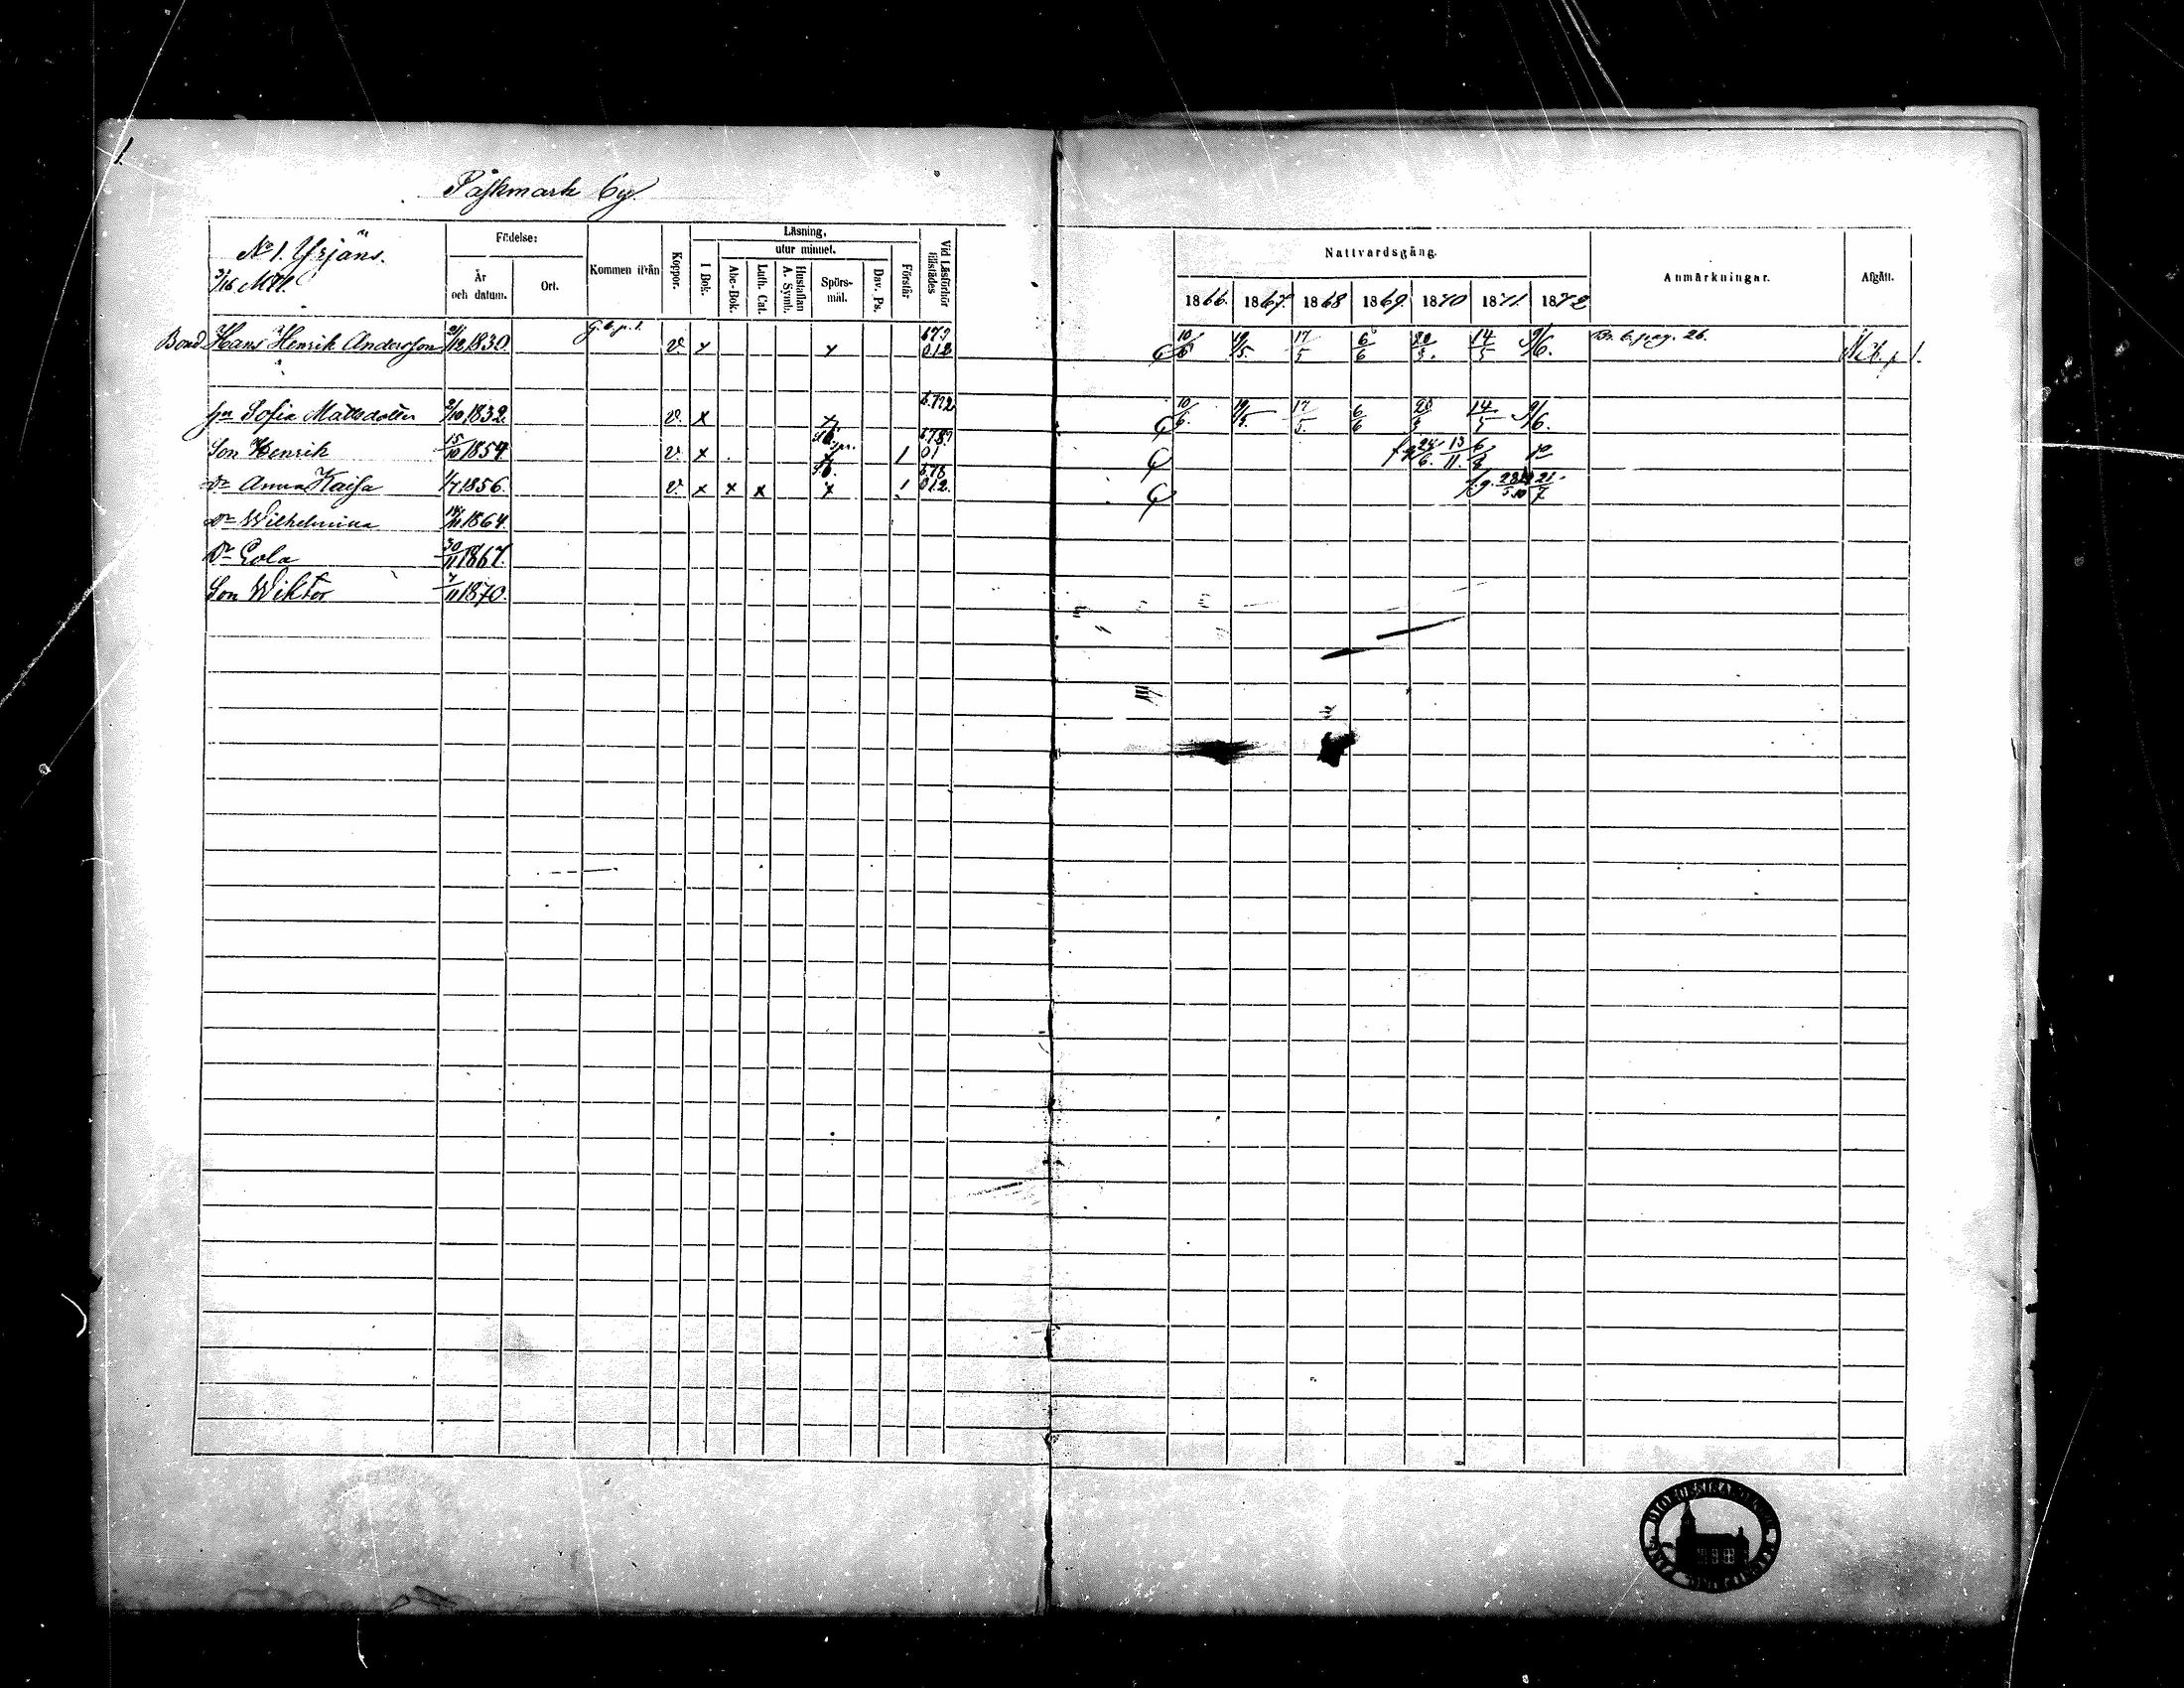 1.
Påskmark by.
No 1. Yrjäns.
3/16 Mtl.
Födelse:
År och datum.
Ort.
Kommen ifrån
Koppor.
Läsning,
I Bok.
utur minnet.
Abc-Bok.
Luth. Cat.
Hustaflan A. Symb.
Spörs-mål.
Dav. Ps.
Förstår
Vid Läsförhör tillstädes
Nattvardsgång.
1866. 1867. 1868 1869. 1870 1871 1872
Anmärkningar.
Afgått.
Bond Hans Henrik Andersson /12 1830. G. b. p. 1. v. x x 67? 012 10/6 19/5. 17/5 6/6 14/5 9/6. Br. b. pag. 26. N. b. p. 1.
hu Sofia Mattsdotter 2/10 1832. v. x x 6772 10/6. 19/5. 17/5. 6/6 14/5 9/6.
Son Henrik 15/10 1854 v. x 1 678? 01 24/6. 13/11.
Dr Anna Kaisa 1/7 1856. v. x x x x 1 678 012. 21/7
Dr Wilhelmina /11 1864.
Dr Eola 30/11 1867.
Son Wiktor 7/11 1870.